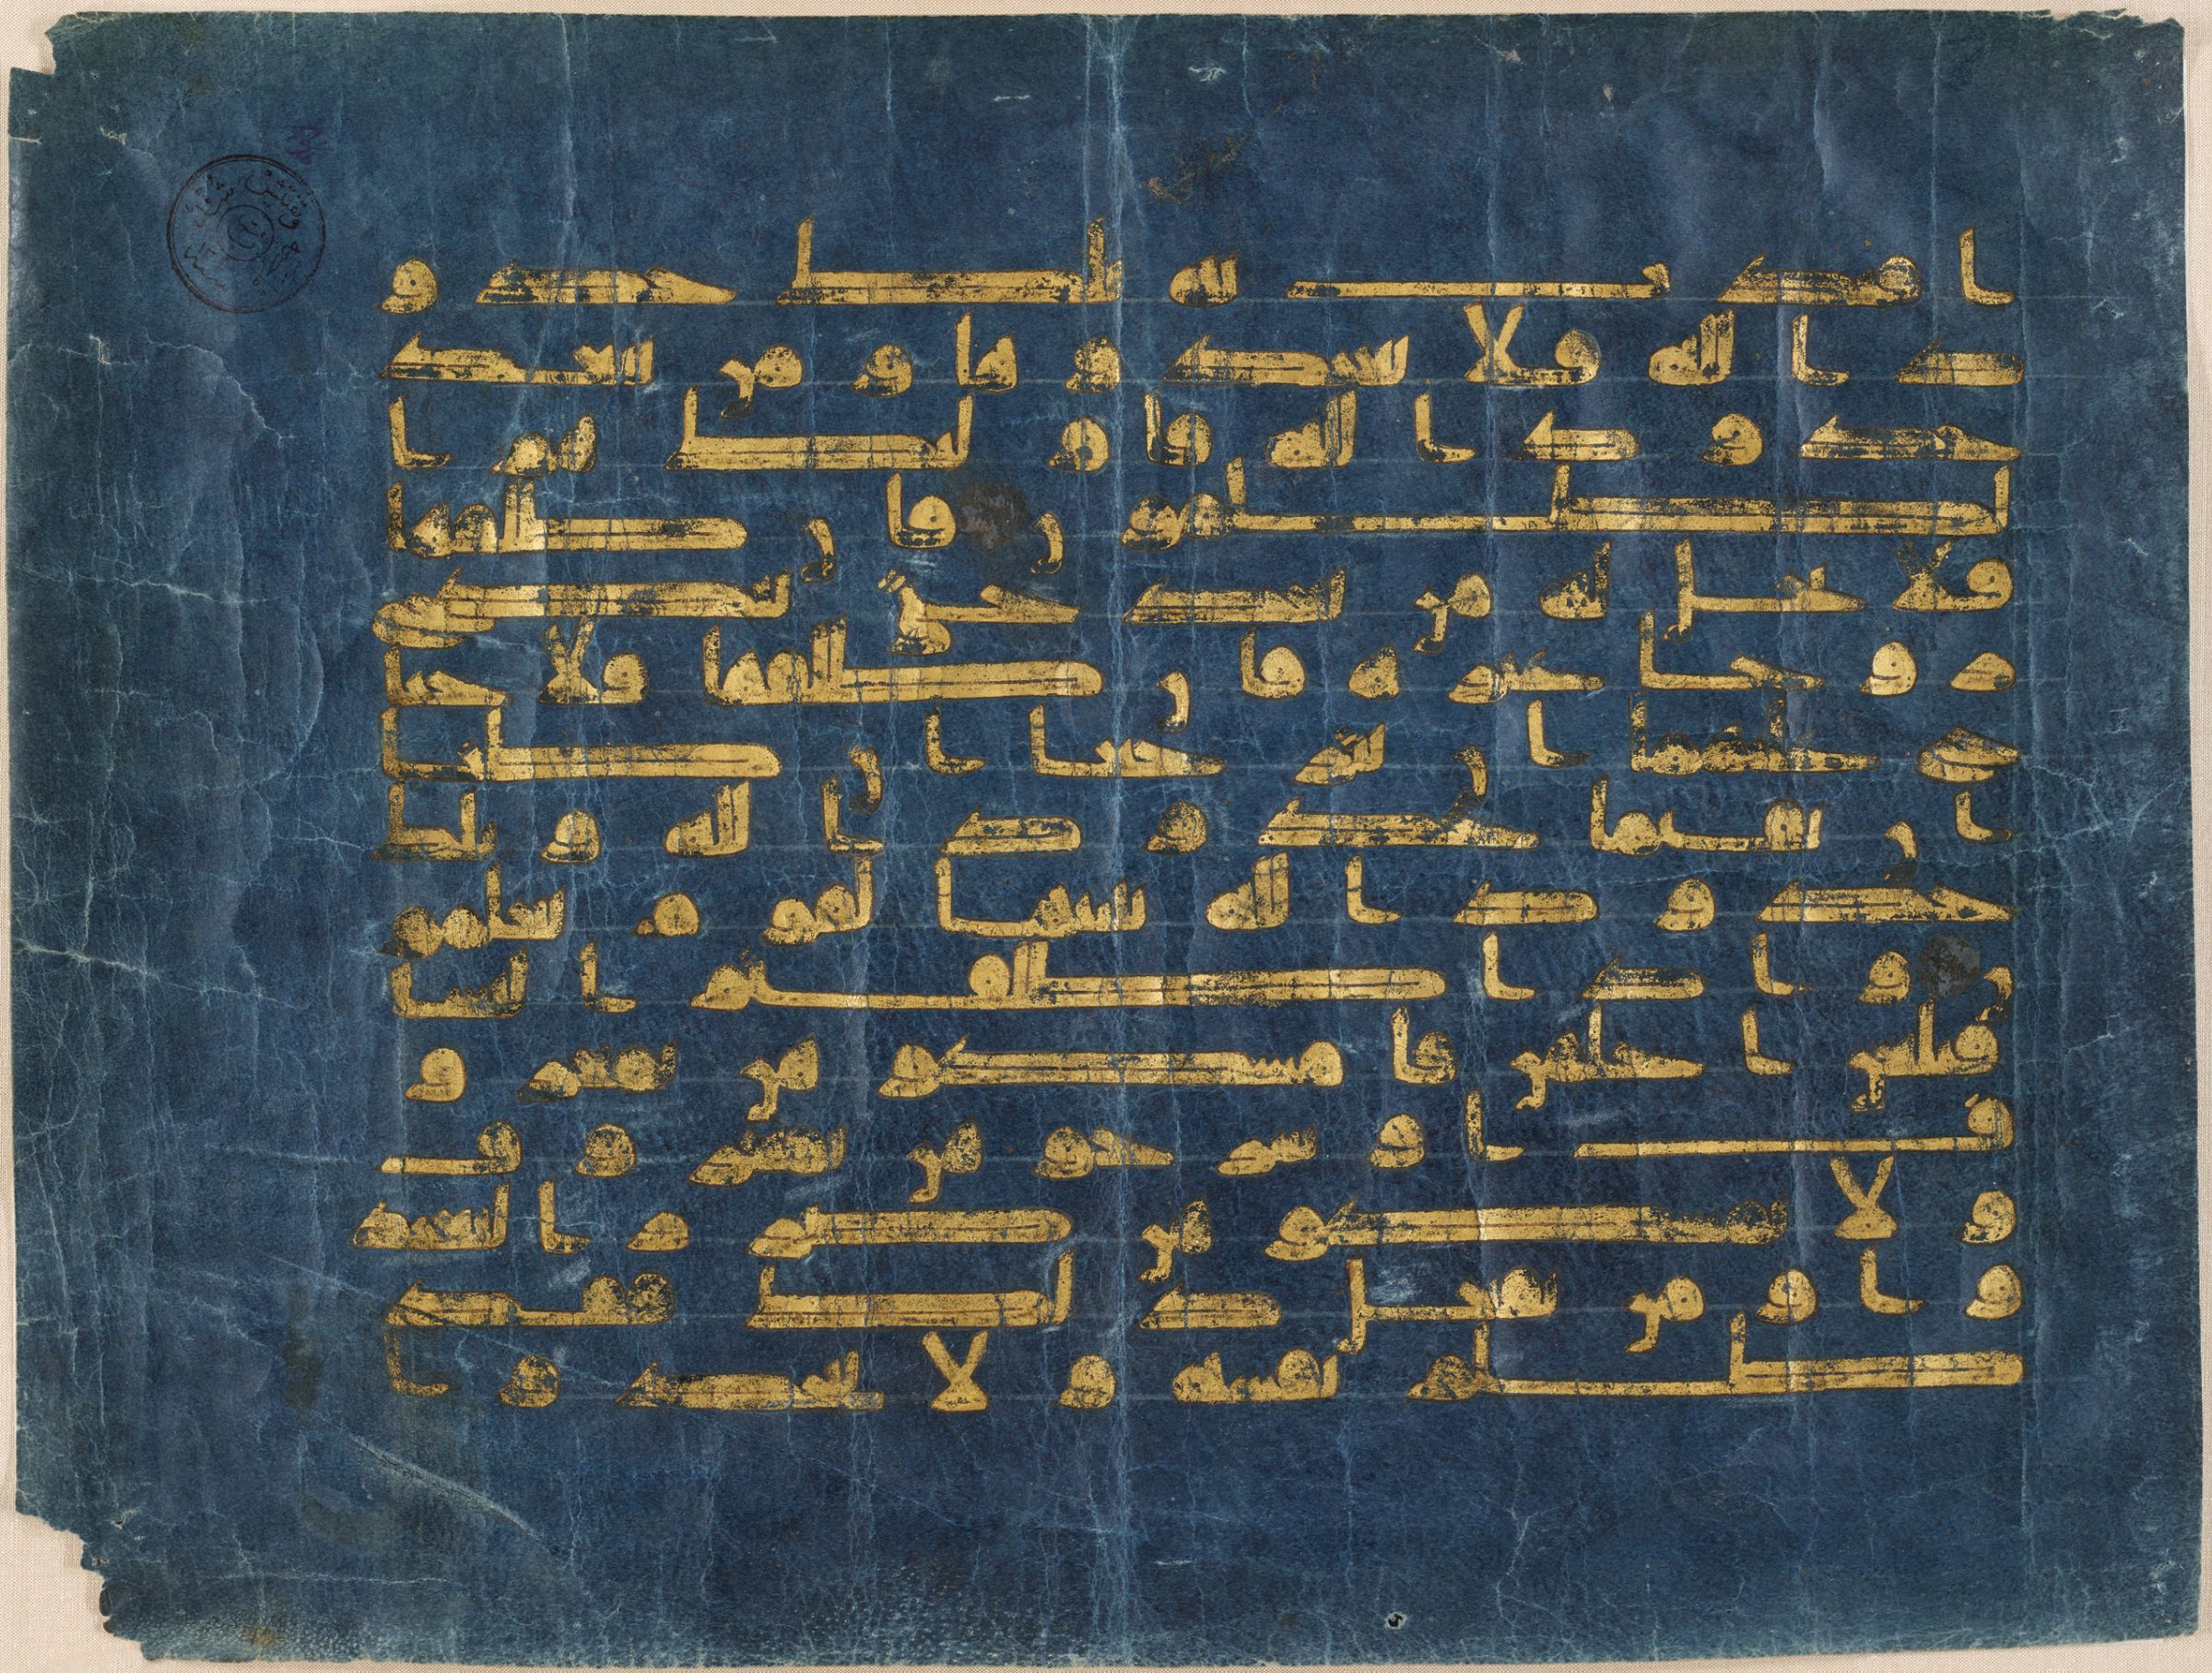 افتدت به تلك حدو
د الله فلا تعتدوها ومن يتعد
حدود الله فاولئك هم ا
لظلمون فان طلقها
فلا تحل له من بعد حتى تنكح ز
وجا غيره فان طلقها فلا جنا
ح عليهما ان يتراجعا ان ظنا ا
ن يقيما حدود الله وتلك
حدود الله يبينها لقوم يعلمو
ن واذا طلقتم النسا
فبلغن اجلهن فامسكوهن بمعرو
ف او سرحوهن بمعروف
ولا تمسكوهن ضرارا لتعتد
وا ومن يفعل ذلك فقد
ظلم نفسه ولا تتخذوا